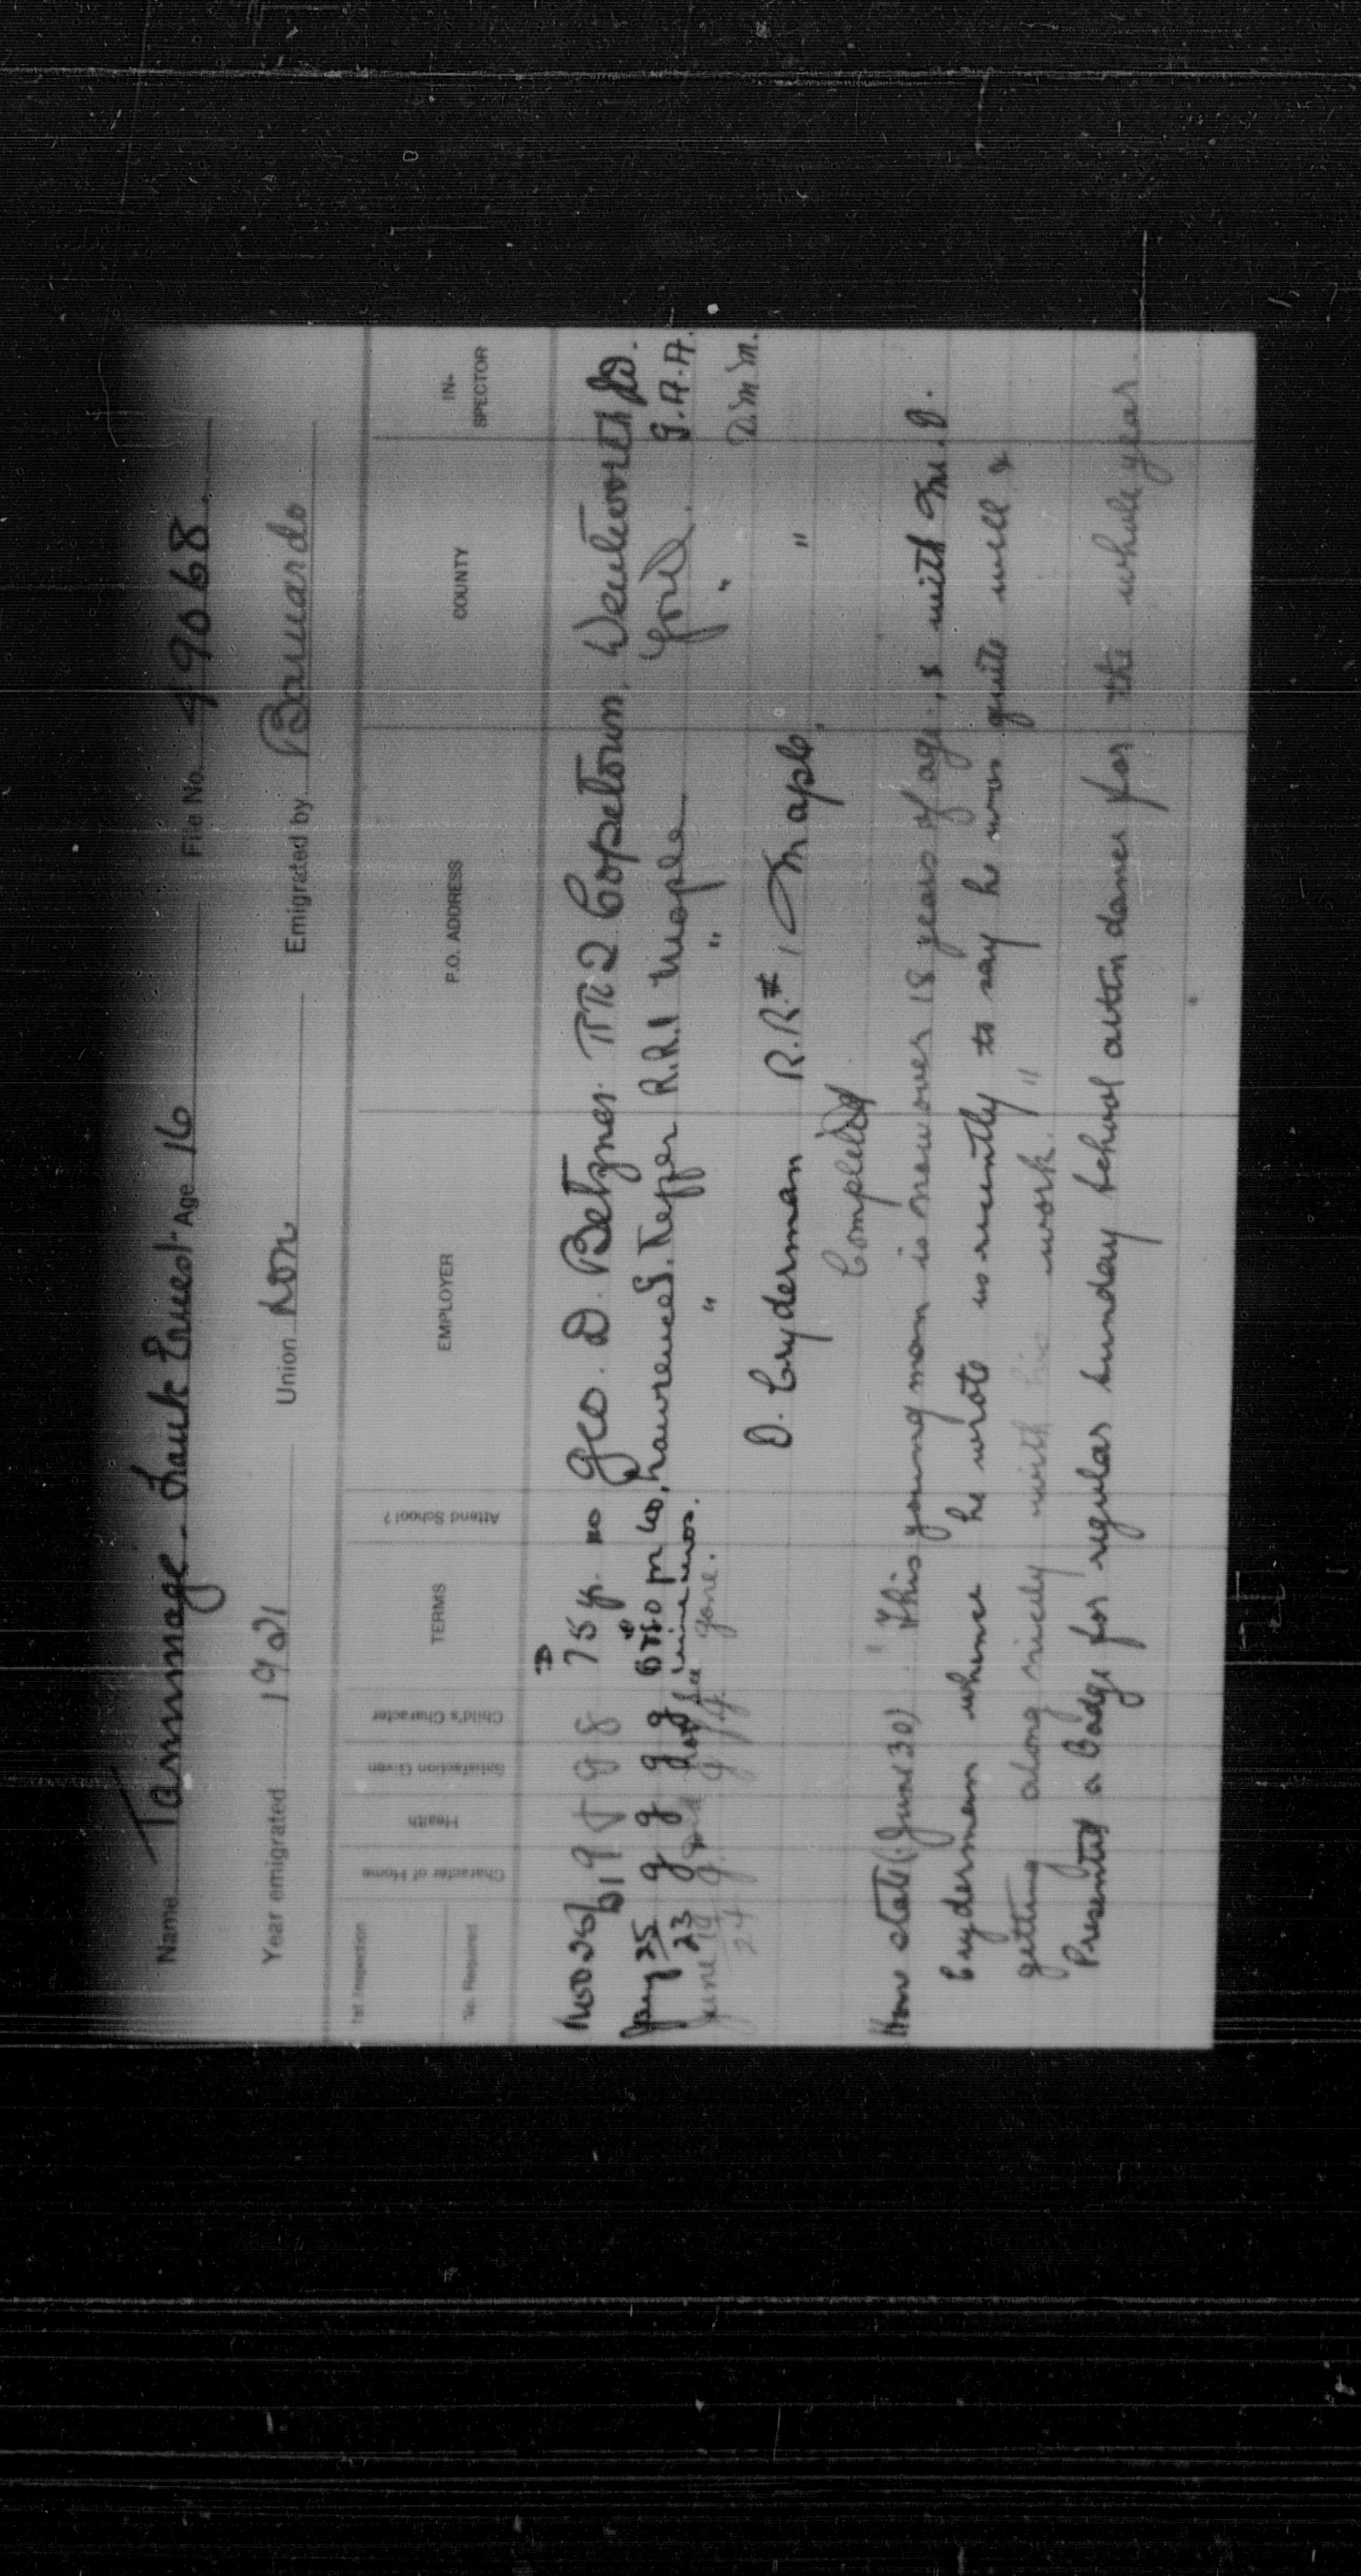 Name Tammage - Frank Ernest Age 16 File No. 49068.
Year emigrated 1921 Union Lon Emigrated by Barnardo
1st Inspection
No. Required Character of Home Health Satisfaction Given Child's Character TERMS Attend School? EMPLOYER P.O. ADDRESS COUNTY IN-SPECTOR
Nov 26/21 g g g 75 yr no Geo. D. Betzner RR 2 Copetown Wentworth
Jany 25 23 g g g g pr no, Lawrence J. Keffer R.R.1 Maple York. G.A.A.
June 19 24 g gone. " " " D.M.M.
D. Cryderman R.R.# 1 Maple. "
Completed
Home state (June 30) "This young man is now over 18 years of age, & with Mr. D.
Cryderman whence he wrote us recently to say he was quite well &
getting along nicely with his work."
Presented a Badge for regular Sunday School attendance for the whole year